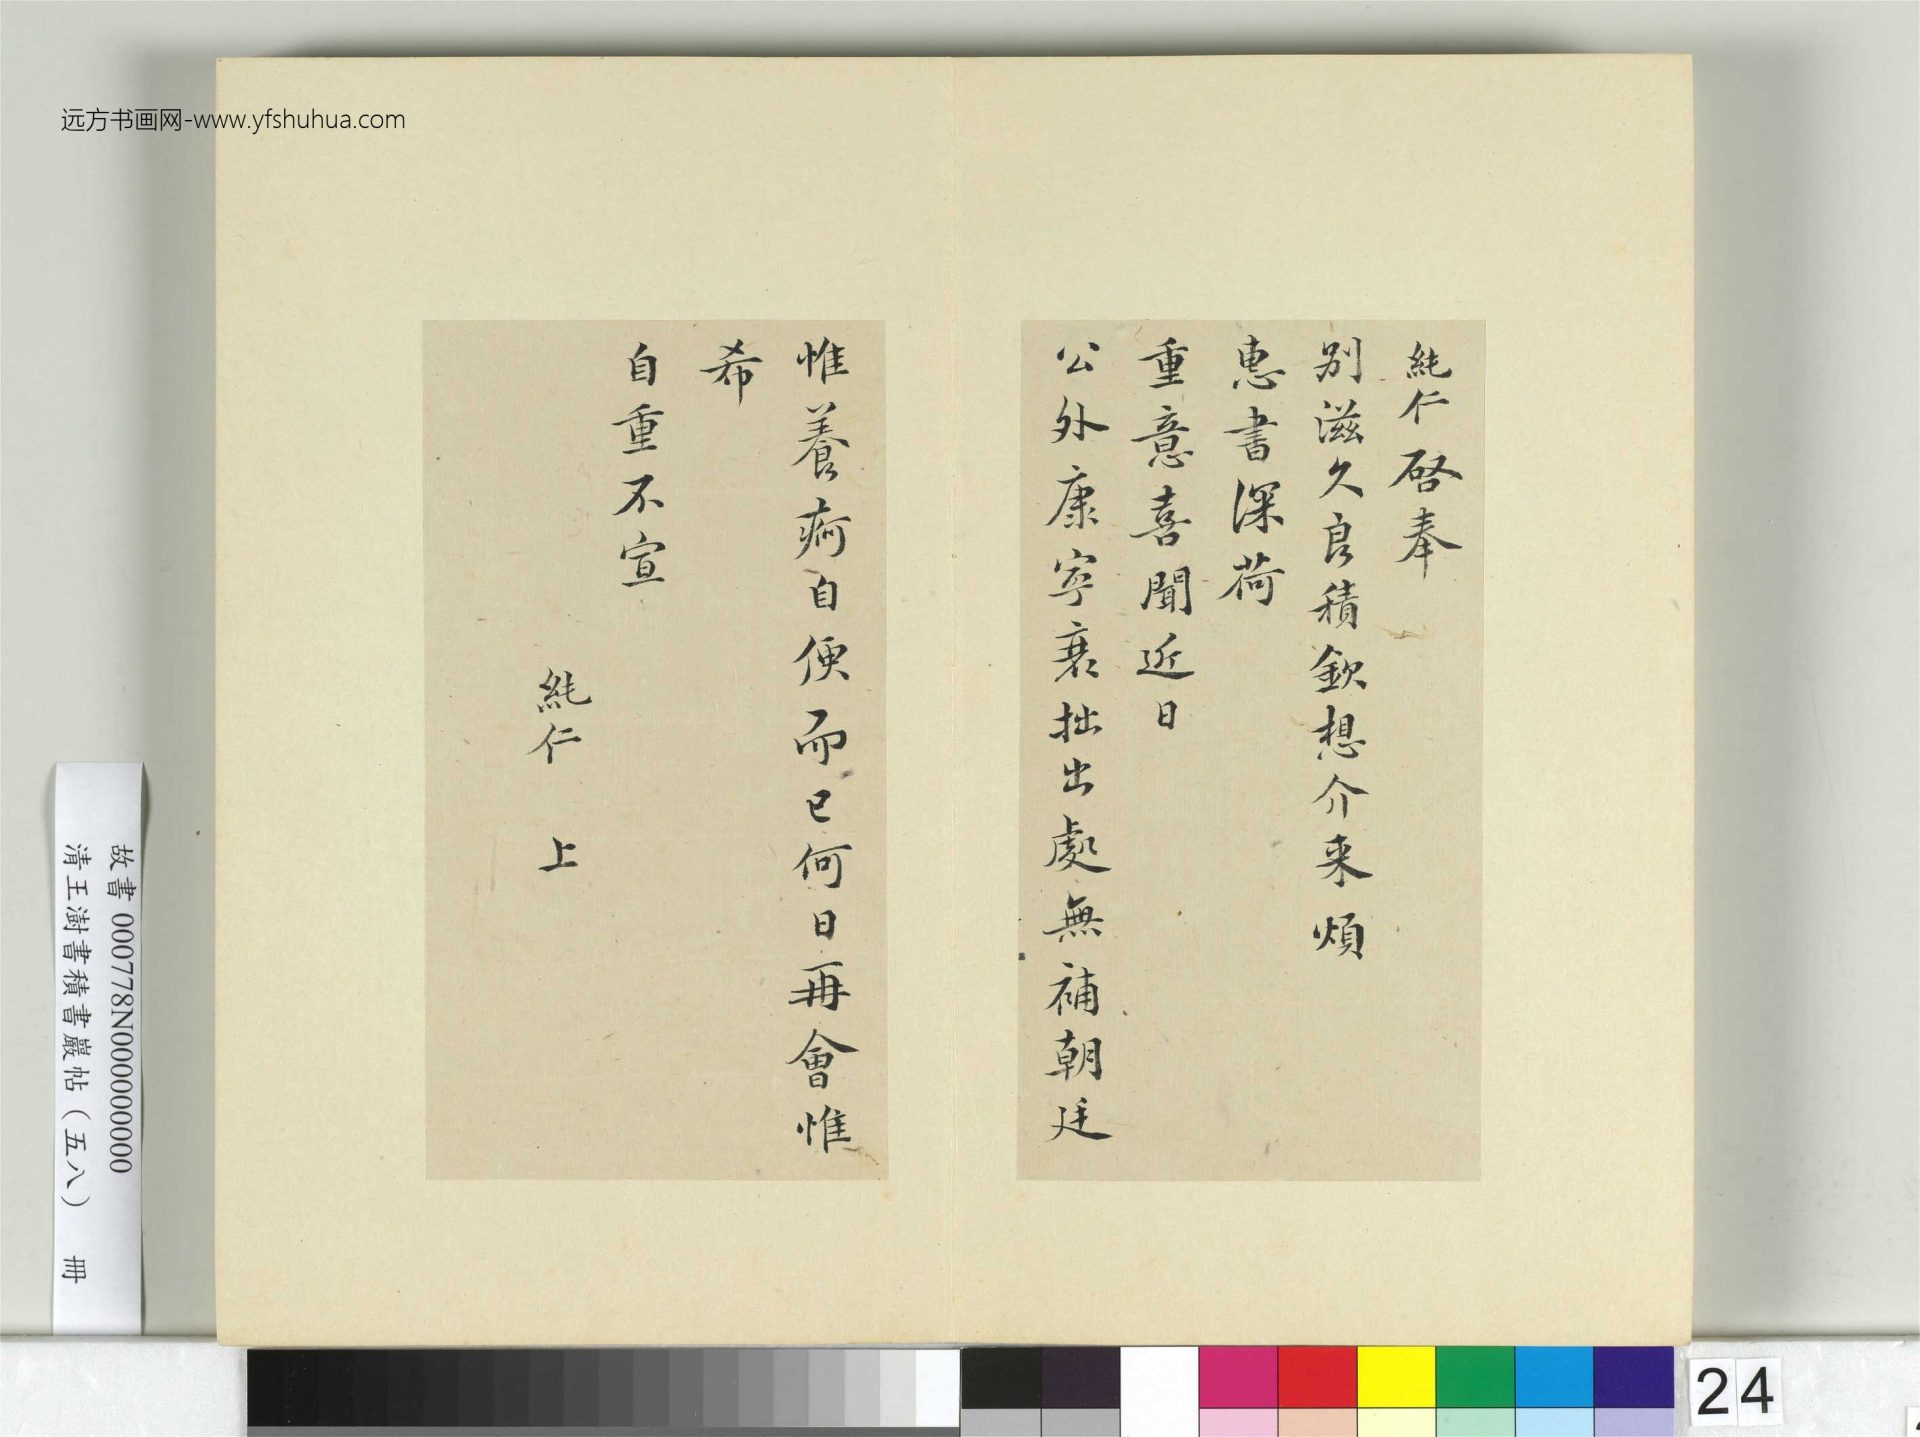 远方书画网-www.yfshuhua.com
純仁啓奉
别滋久良積欽想介来煩
惠書深荷
重意喜聞近日
公外康寧衰拙出處無補朝廷
惟養痾自便而已何日再會惟
希
自重不宣
純仁 上
故書 000778N000000000
清王澍書積書巖帖(五八) 冊
24